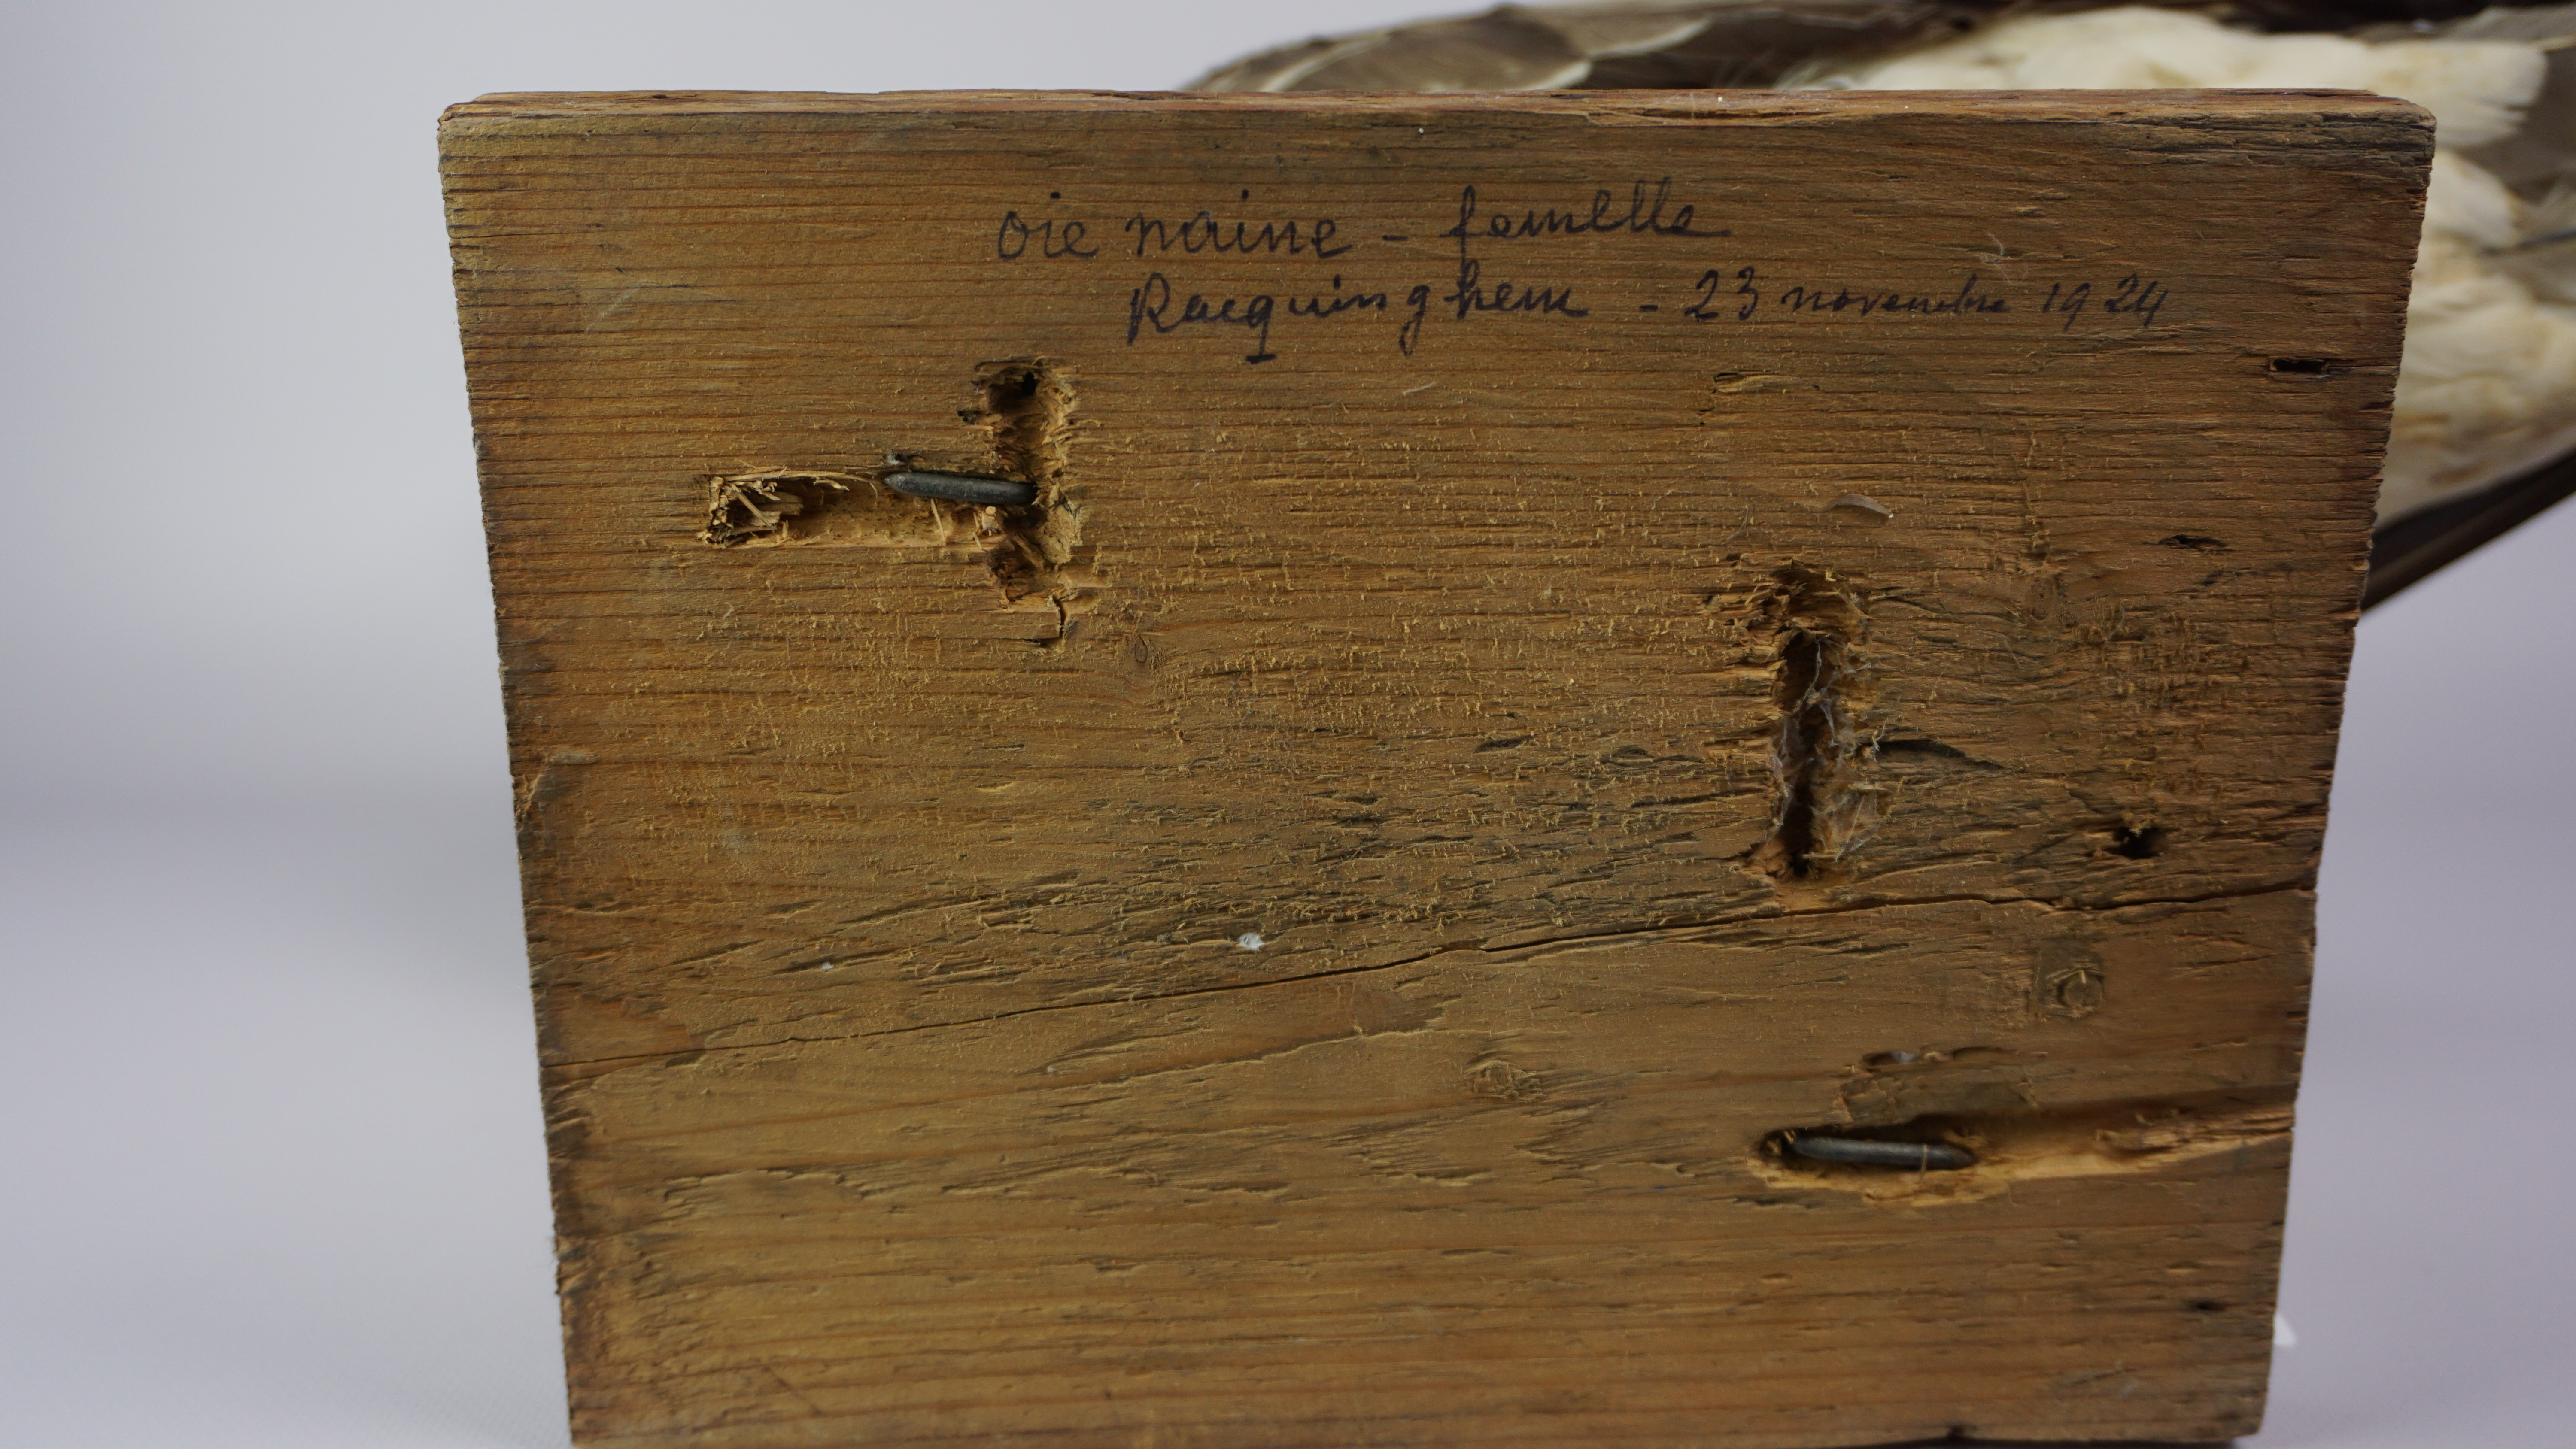 oie naine - femelle
Racquinghem - 23 novembre 1924